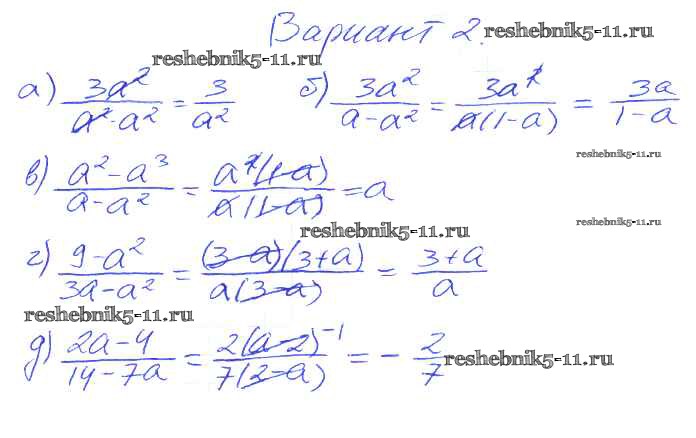 Вариант 2.
reshebnik5-11.ru
reshebnik5-11.ru
а) 3a²/(a²·a²) = 3/a² б) 3a²/(a-a²) = 3a²/(a(1-a)) = 3a/(1-a)
reshebnik5-11.ru
в) (a²-a³)/(a-a²) = a²(1-a)/(a(1-a)) = a
reshebnik5-11.ru
reshebnik5-11.ru
г) (9-a²)/(3a-a²) = (3-a)(3+a)/(a(3-a)) = (3+a)/a
reshebnik5-11.ru
д) (2a-4)/(14-7a) = 2(a-2)⁻¹/(7(2-a)) = -2/7
reshebnik5-11.ru